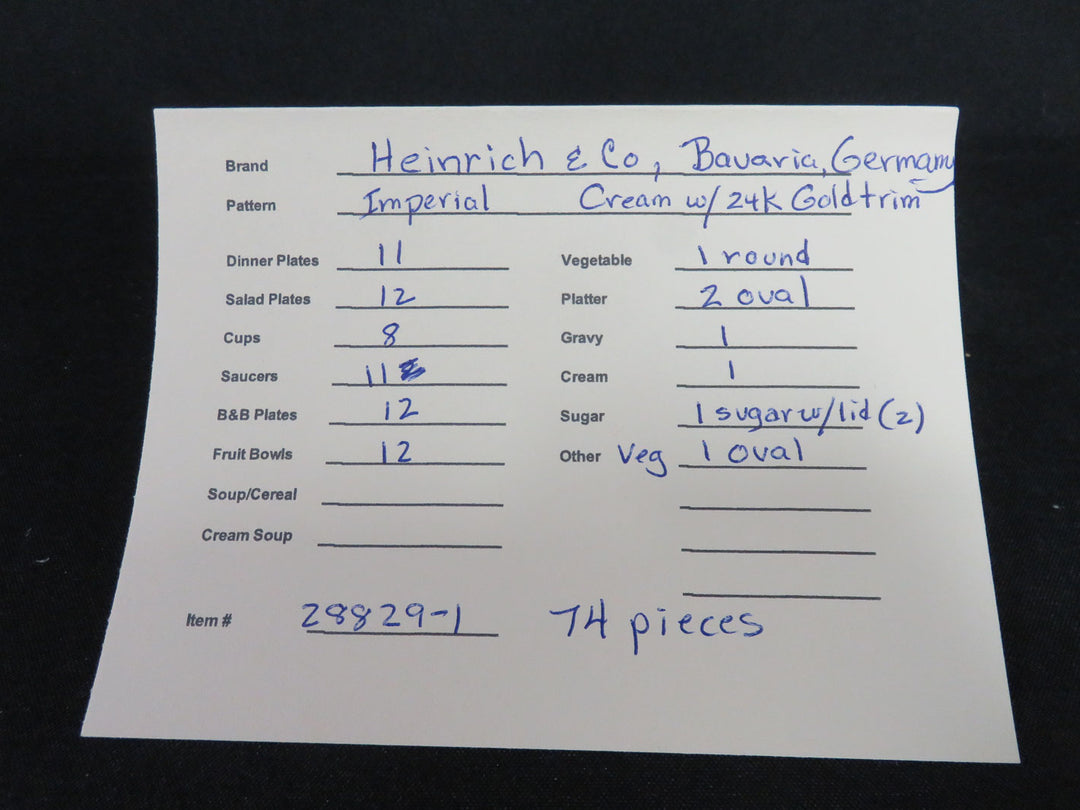 Brand Heinrich & Co, Bavaria, Germany
Pattern Imperial Cream w/ 24K Gold trim
Dinner Plates 11 Vegetable 1 round
Salad Plates 12 Platter 2 oval
Cups 8 Gravy 1
Saucers 11 Cream 1
B&B Plates 12 Sugar 1 sugar w/lid (2)
Fruit Bowls 12 Other Veg 1 oval
Soup/Cereal
Cream Soup
Item # 28829-1 74 pieces